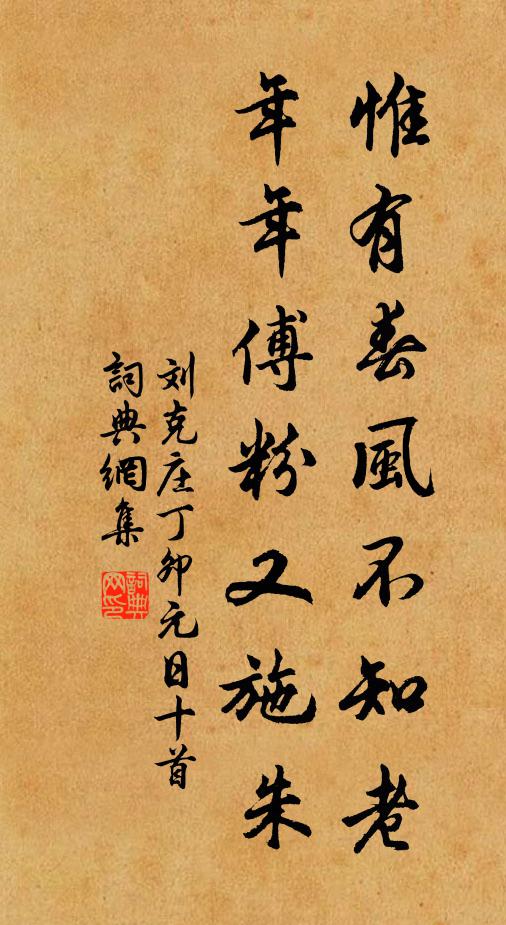 惟有春風不知老
年年傅粉又施朱
刘克庄丁卯元日十首
詞典網集
詞典网印